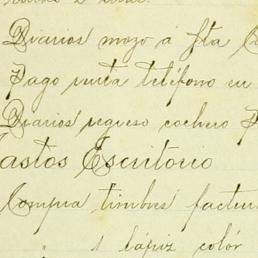 Diarios mozo á fta
Pago visita teléfono en
Diarios regreso cochero
Gastos Escritorio
Compra timbres factur
" 1 lápiz colór